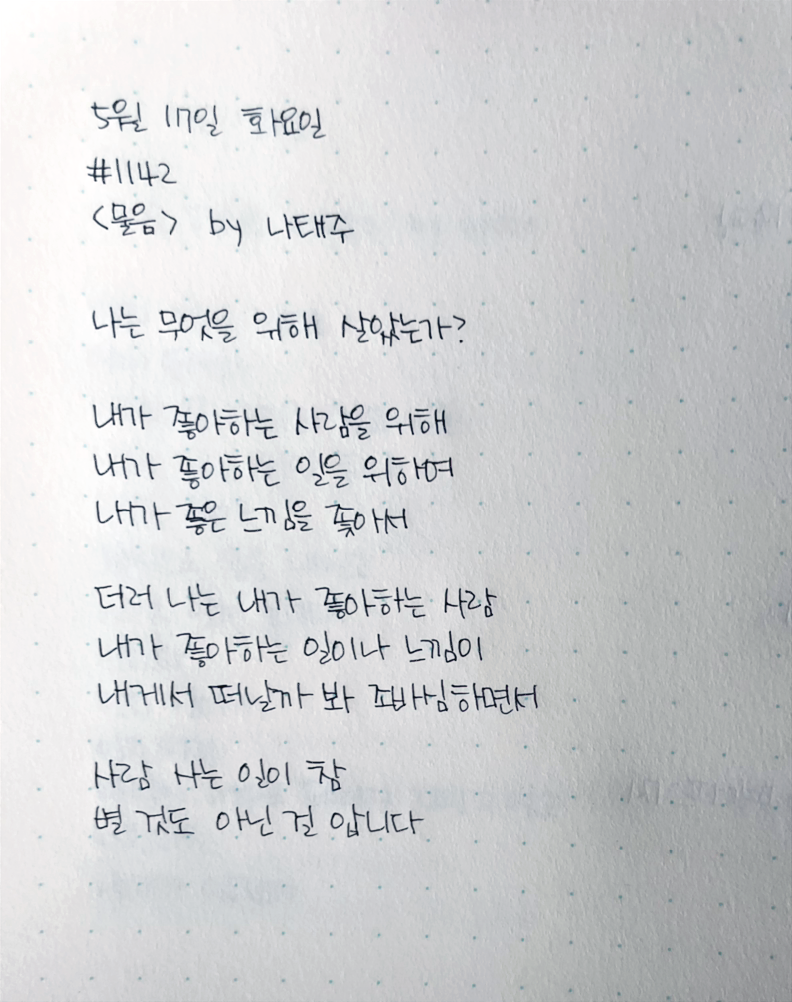 5월 17일 화요일
#1142
<물음> by 나태주
나는 무엇을 위해 살았는가?
내가 좋아하는 사람을 위해
내가 좋아하는 일을 위하여
내가 좋은 느낌을 좇아서
더러 나는 내가 좋아하는 사람
내가 좋아하는 일이나 느낌이
내게서 떠날까 봐 조바심하면서
사람 사는 일이 참
별 것도 아닌 걸 압니다